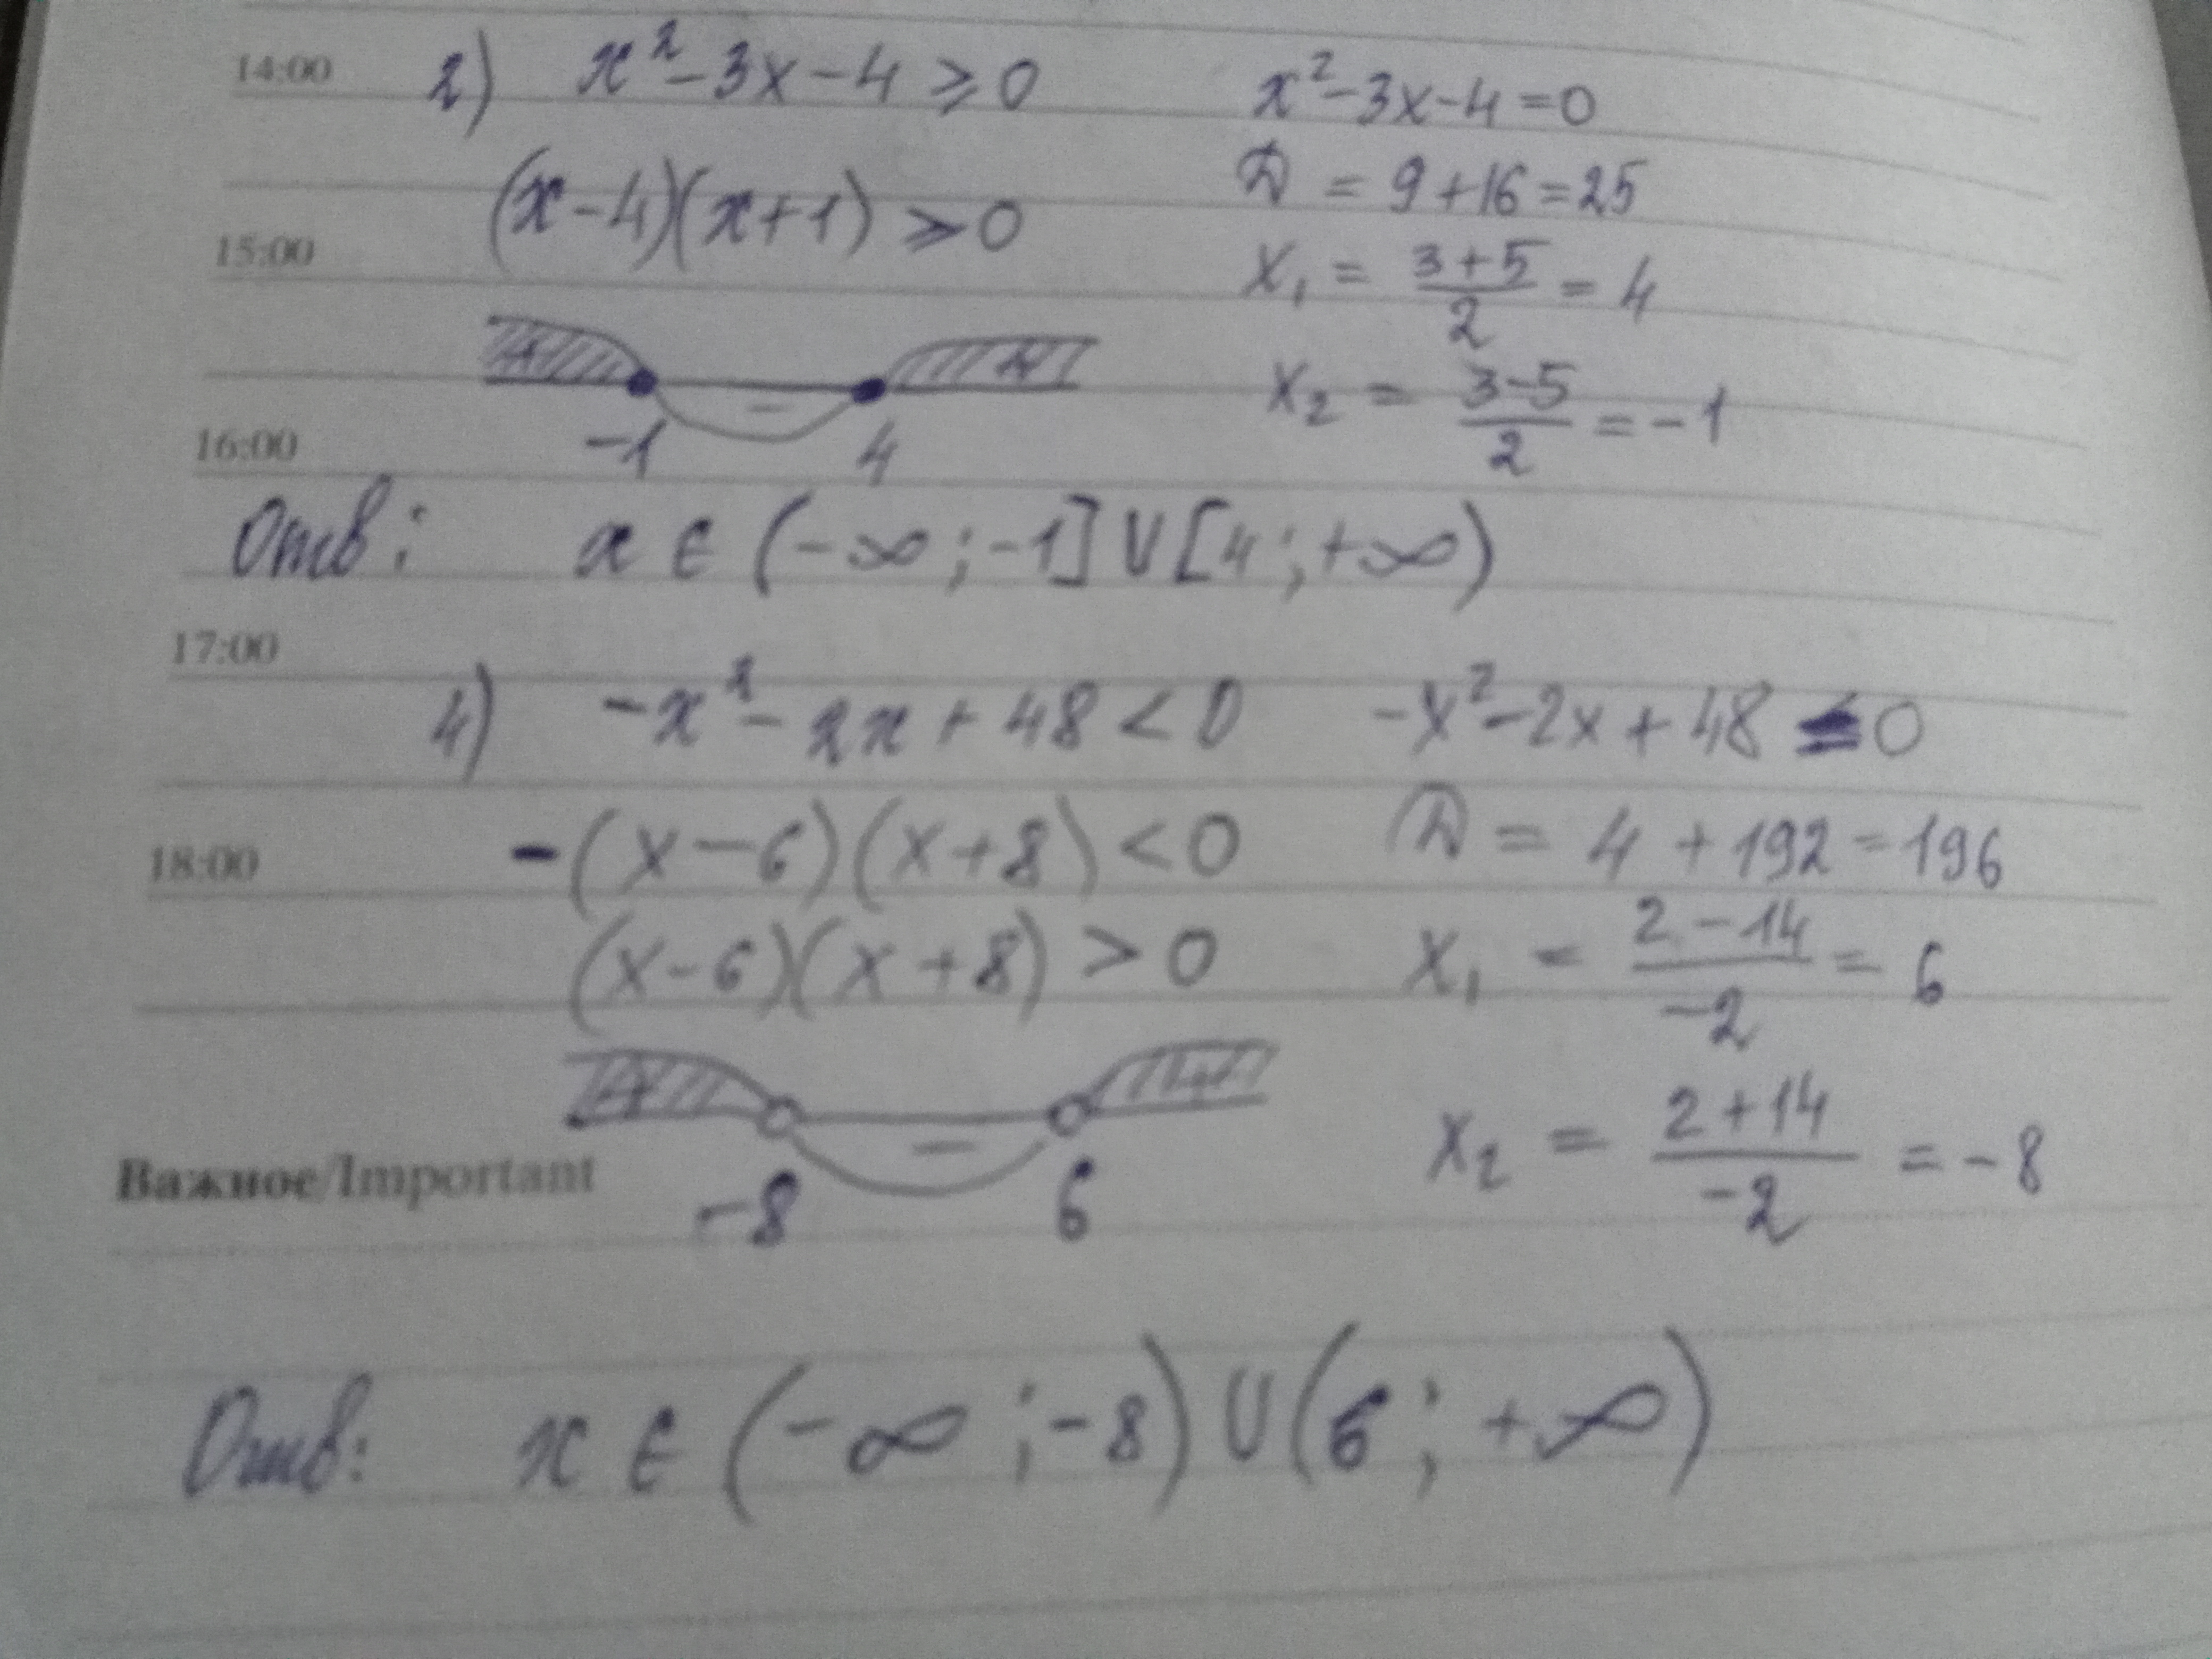 14:00 2) x² - 3x - 4 ⩾ 0 x² - 3x - 4 = 0
(x - 4)(x + 1) ⩾ 0 D = 9 + 16 = 25
15:00 x₁ = (3 + 5)/2 = 4
+ - +
x₂ = (3 - 5)/2 = -1
16:00 -1 4
Отв: x ∈ (-∞; -1] ∪ [4; +∞)
17:00
4) -x² - 2x + 48 < 0 -x² - 2x + 48 = 0
18:00 -(x - 6)(x + 8) < 0 D = 4 + 192 = 196
(x - 6)(x + 8) > 0 x₁ = (2 - 14)/(-2) = 6
+ - +
Важное/Important -8 6 x₂ = (2 + 14)/(-2) = -8
Отв: x ∈ (-∞; -8) ∪ (6; +∞)